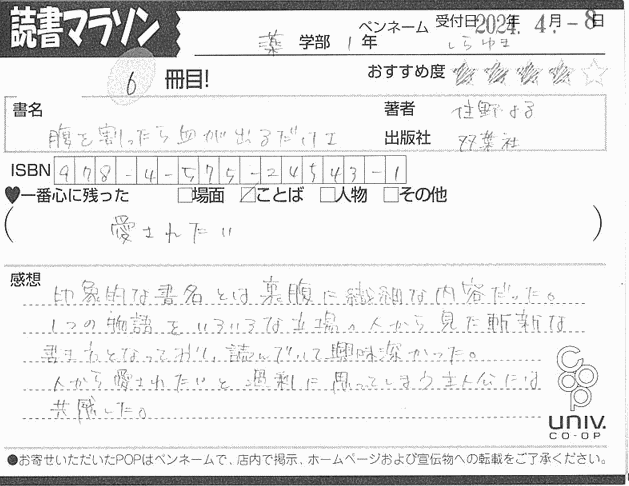 読書マラソン
薬 学部 1年
ペンネーム しらゆき
受付日 2024年 4月 -8日
6 冊目!
おすすめ度 ★★★★☆
書名
腹を割ったら血が出るだけさ
著者 住野よる
出版社 双葉社
ISBN 978-4-575-24543-1
♥一番心に残った □場面 ☑ことば □人物 □その他
(愛されたい)
感想
印象的な書名とは裏腹に繊細な内容だった。
1つの物語をいろいろな立場の人から見た斬新な
書き方となっており、読んでいて興味深かった。
人から愛されたいと過剰に思ってしまう主人公には
共感した。
coop
UNIV.
CO-OP
●お寄せいただいたPOPはペンネームで、店内で掲示、ホームページおよび宣伝物への転載をご了承ください。